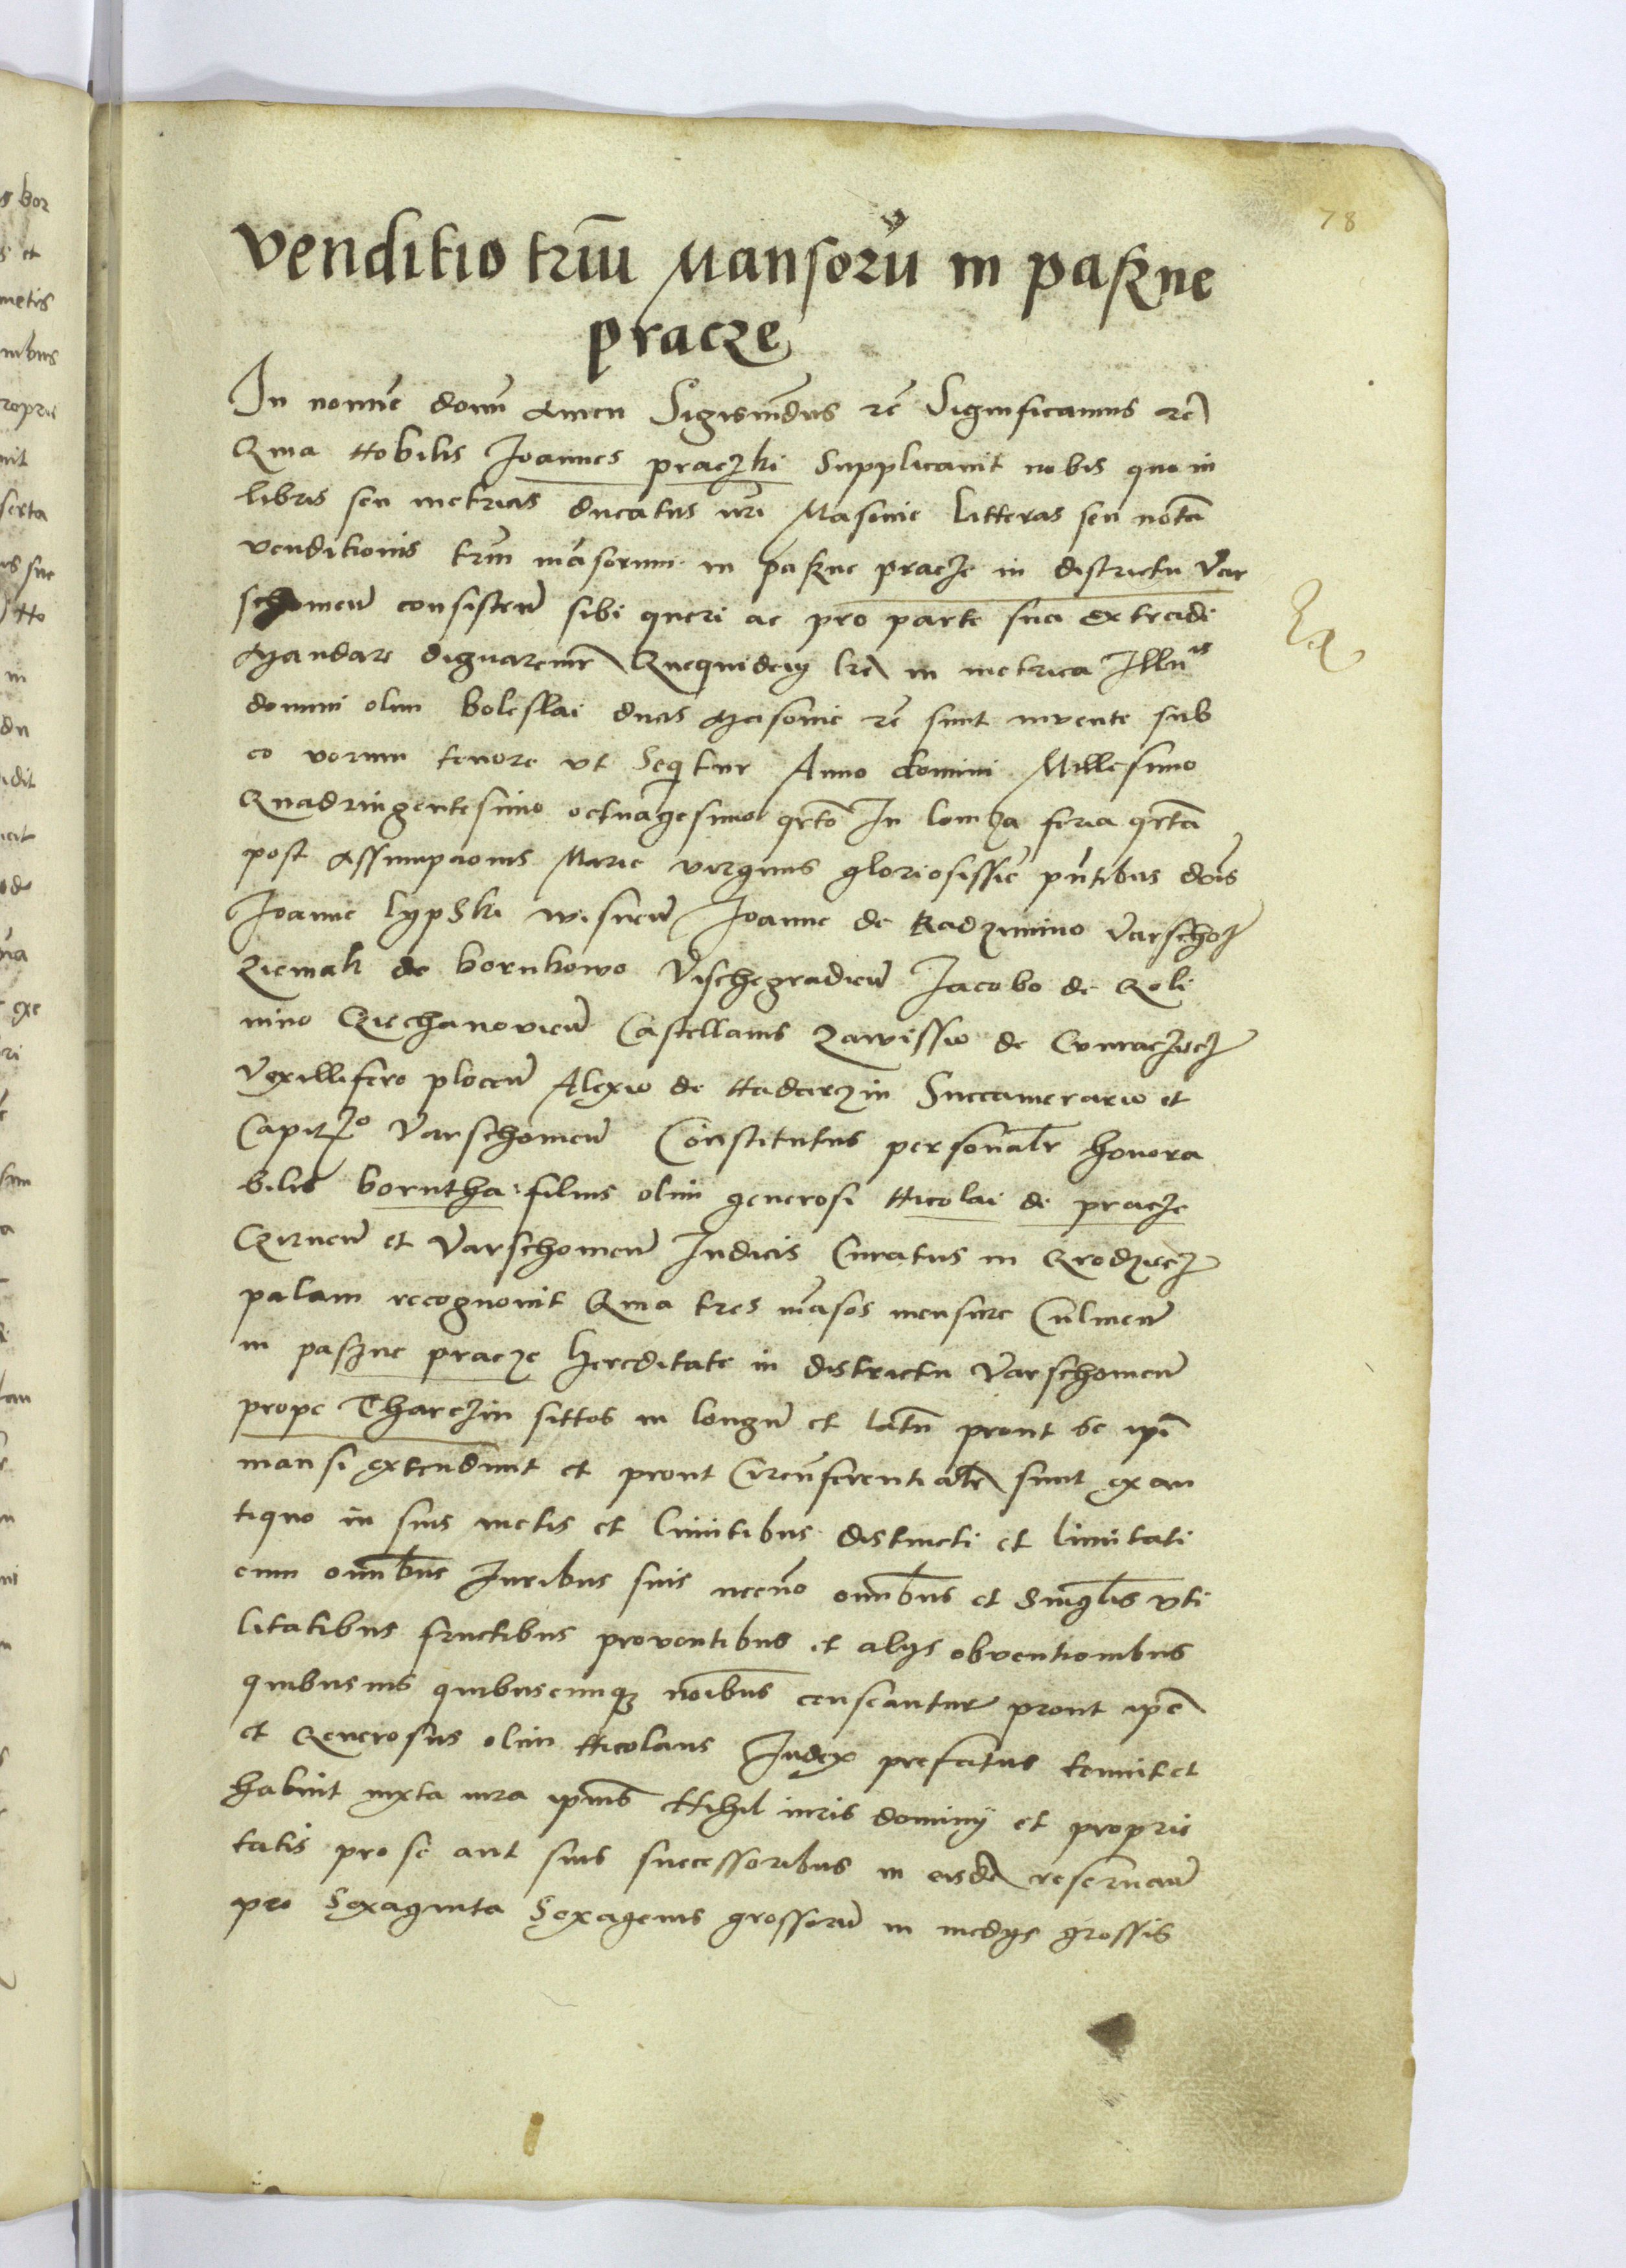 78
Venditio triū Mansorū in paßne
pracze
In nomīe domī Amen Sigismūdus rē Significamus rē
Qma Nobilis Joannes praczki Supplicavit nobis quo in
libris seu metricis ducatus nrī Masovie litteras seu notā
venditionis triū māsorum in paßne pracze in districtu Var
schovieñ consisteñ sibi queri ac pro parte sua extradi
Mandare dignaremr Quequidem lre in metrica Illuis
domini olim boleslai ducis Masovie rē sunt invente sub
eo verum tenore ut Seqitur Anno domini Millesimo
Quadringentesimo octuagesimo qrto In lomza feria qrta
post Assumpcionis Marie virginis gloriosissie pñtibus dnis
Joanne lypski wisneñ Joanne de Radzimino Varschoz
Ziemak de bornkowo Vischegradieñ Jacobo de Goli
mino Cziechanovieñ Castellanis Zawissio de
Vexilliferoploceñ Alexio de Nadarzin Succamerario et
Capitzo Varschovieñ Constitutus personalr honora
bilis borutha filius olim generosi Nicolai de pracze
Czirneñ et Varschovieñ Judicis Curatus in Grodziecz
palam recognovit Qma tres māsos mensure Culmeñ
in paszne pracze hereditate in districtu Varschovieñ
prope Tharczin sittos in longū et latū prout se ipi
mansi extendunt et prout Circūferentialr sunt ex an
tiquo in suis metis et limitibus distincti et limitati
cum omībus Iuribus suis necnō omībus et singlis uti
litatibus fructibus proventibus et alys obventionibus
quibusvis quibuscunqz noibus censeantur prout ipe
et Generosus olim Nicolaus Judex prefatus tenuit et
habuit iuxta iura ipius Nihil iuris dominy et proprie
tatis pro se aut suis successoribus in eisdē reservañ
pro Sexaginta Sexagenis grossorū in medys grossis